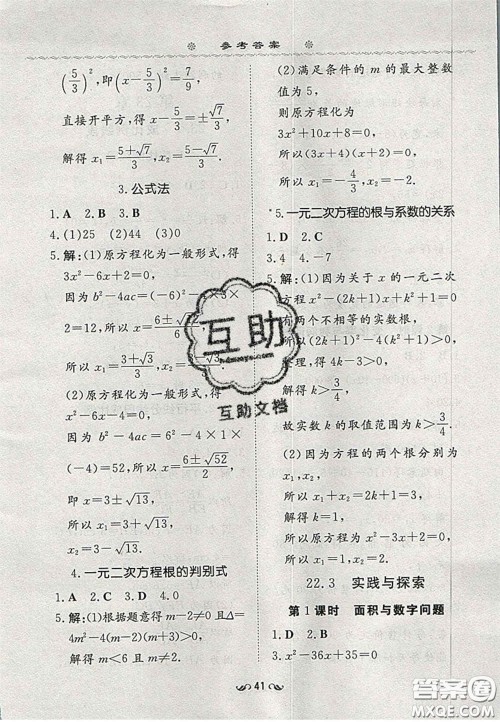 参考答案
(5/3)²,即(x-5/3)²=7/9,
直接开平方,得x-5/3=±√7/3,
解得x₁=(5+√7)/3,x₂=(5-√7)/3.
3.公式法
1.A 2.B 3.B
4.(1)25 (2)44 (3)0
5.解:(1)原方程化为一般形式,得
3x²-6x+2=0,
因为b²-4ac=(-6)²-4×3×
2=12,所以x=
所以x₁=(3+√3)/3,
(2)原方程化为一般形式,得
x²-6x-4=0,
因为b²-4ac=6²-4×1×
(-4)=52,所以x=(6±√52)/2,
即x=3±√13,
所以x₁=3+√13,x₂=3-√13.
4.一元二次方程根的判别式
1.A 2.D 3.A 4.0
5.解:(1)根据题意得m-2≠0且Δ=
4m²-4(m-2)(m+3)>0,
解得m<6且m≠2.
(2)满足条件的m的最大整数
值为5,
则原方程化为
3x²+10x+8=0,
所以(3x+4)(x+2)=0,
所以x₁=-4/3,x₂=-2.
*5.一元二次方程的根与系数的关系
1.D 2.C
3.4 4.-7
5.解:(1)因为关于x的一元二次
方程x²-(2k+1)x+k²+1=0
有两个不等的实数根,
整理,得4k-3>0,
解得k>3/4,
故实数k的取值范围为k>3/4.
(2)因为方程的两个根分别为
x₁,x₂,
所以x₁+x₂=2k+1=3,
解得k=1,
所以x₁x₂=k²+1=2.
22.3 实践与探索
第1课时 面积与数字问题
1.D 2.B
3.x²-36x+35=0
41
互助
互助文档
答案圈
MXQE.COM